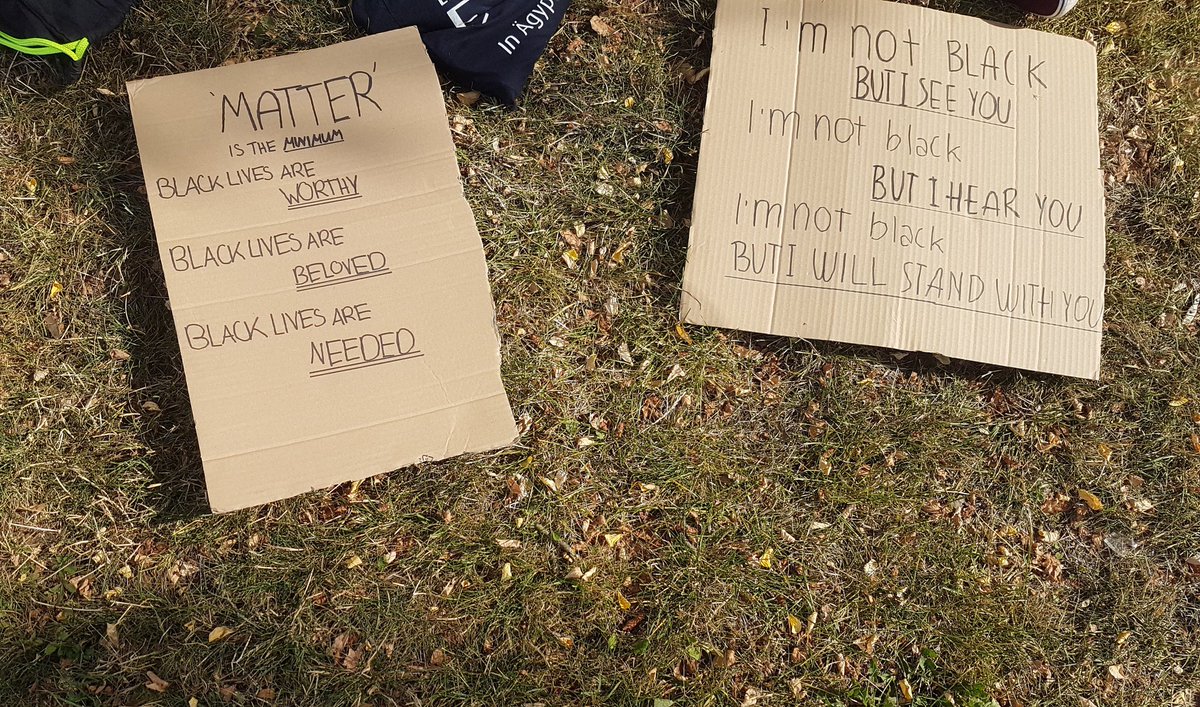 'MATTER'
IS THE MINIMUM
BLACK LIVES ARE
WORTHY
BLACK LIVES ARE
BELOVED
BLACK LIVES ARE
NEEDED
In Ägyp
I'm not BLACK
BUT I SEE YOU
I'm not black
BUT I HEAR YOU
I'm not black
BUT I WILL STAND WITH YOU